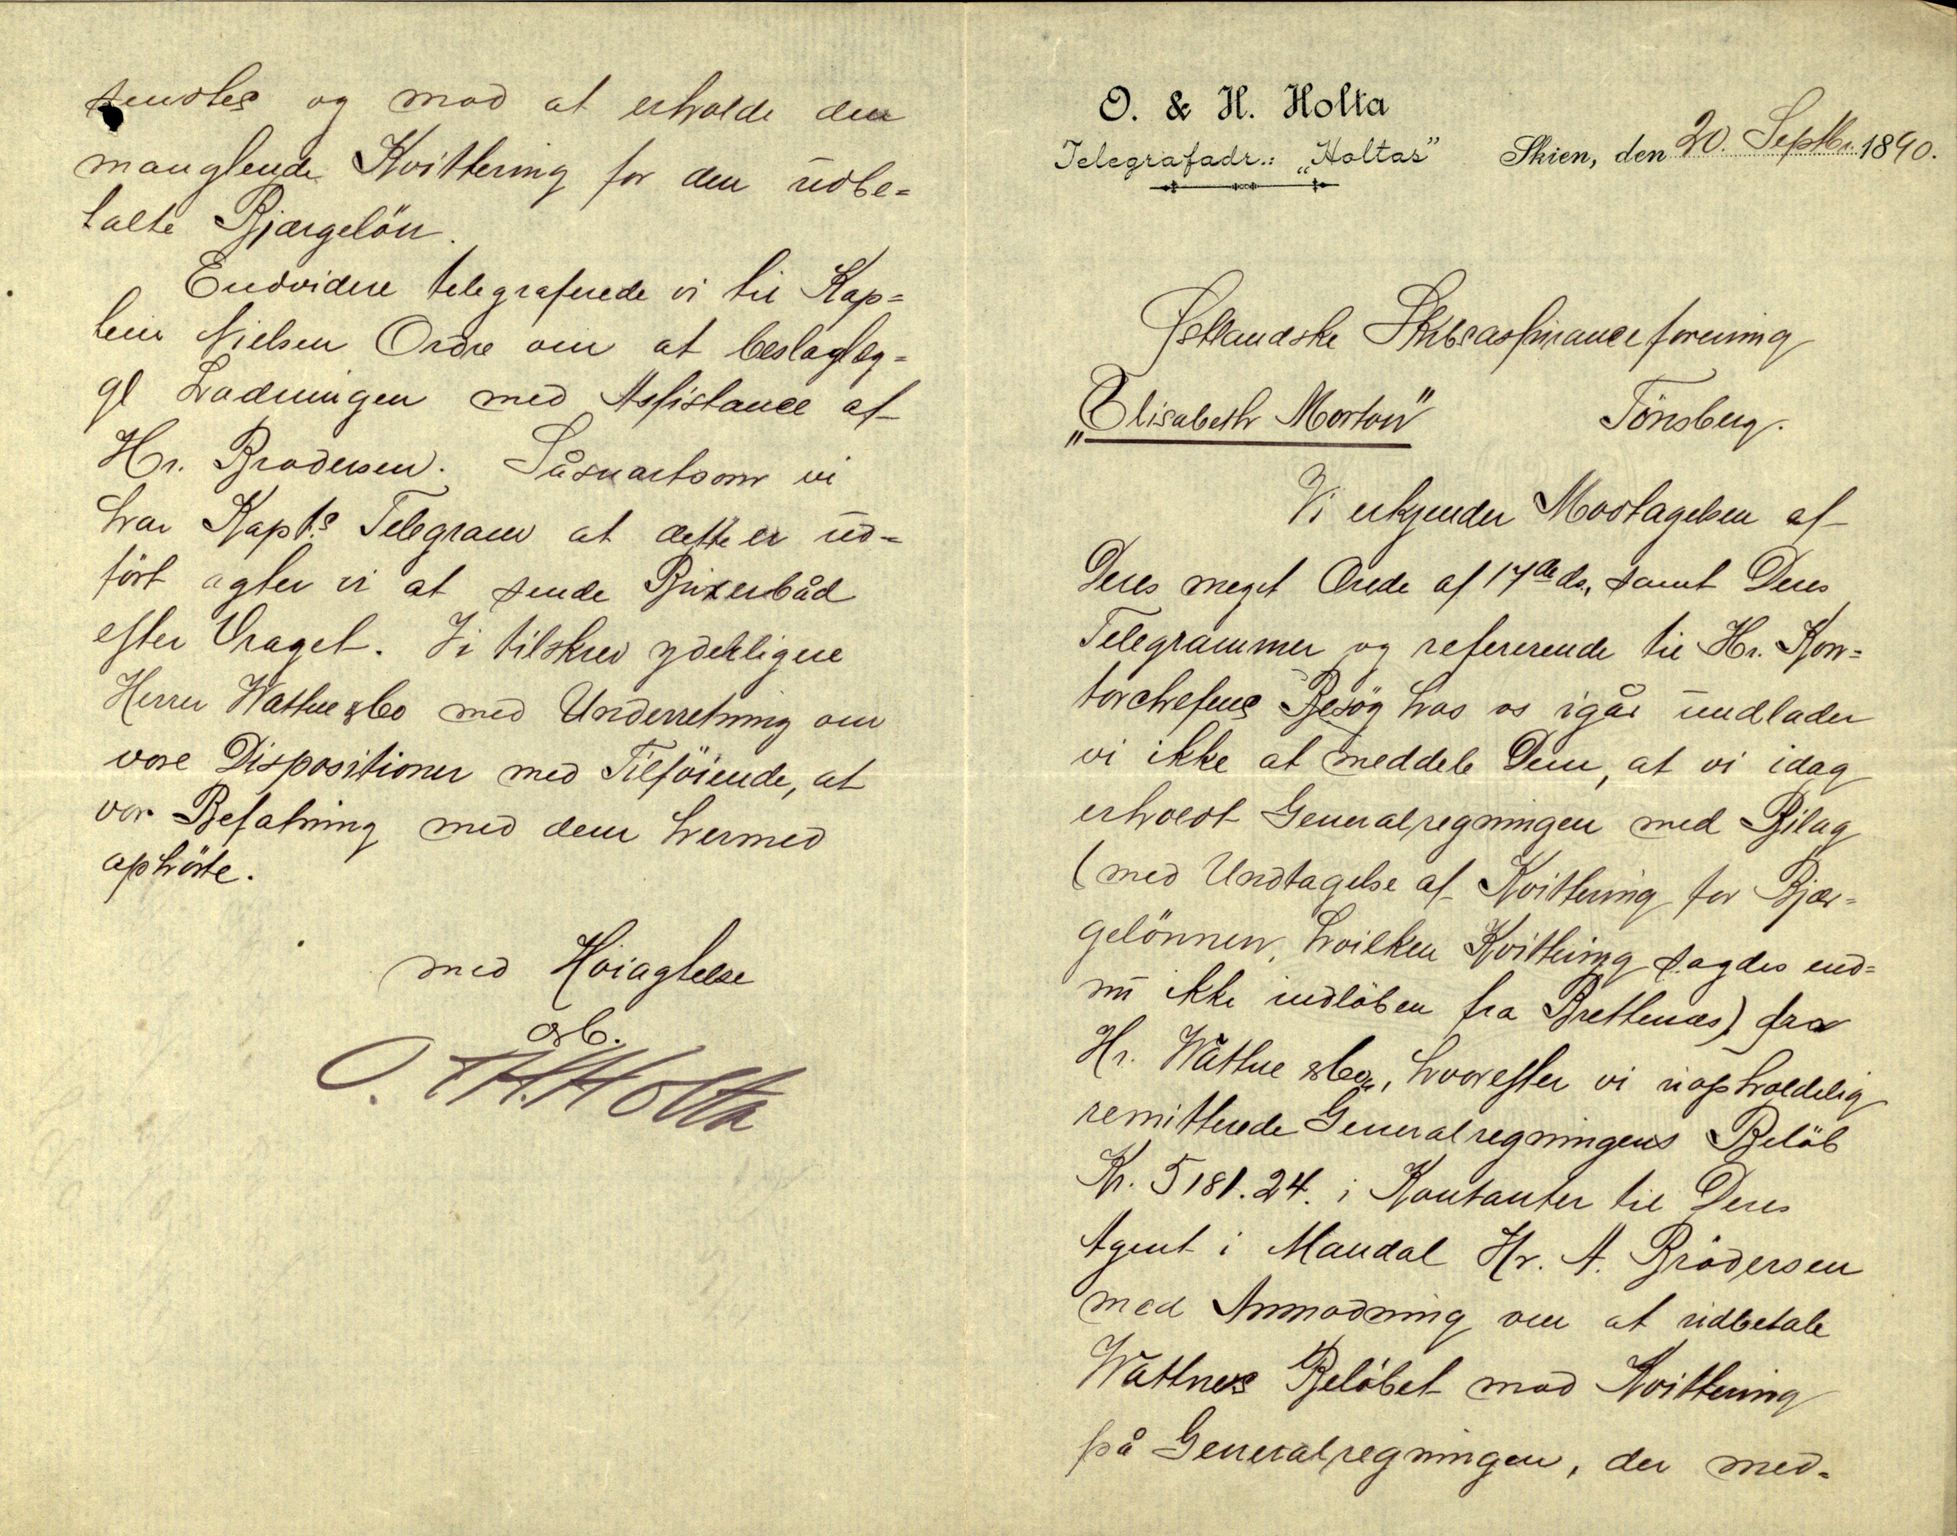 O. & H. Holta
Telegrafadr.: „Holtas”
Skien, den 20. Septbr. 1890.
Østlandske Skibsassuranceforening
„Elisabeth Morton” Tönsberg.
Vi erkjender Modtagelsen af
Deres meget Ærede af 17de ds., samt Deres
Telegrammer og refererende til Hr. Kon=
torchefens Besög hos os igår undlader
vi ikke at meddele Dem, at vi idag
erholdt Generalregningen med Bilag
(med Undtagelse af Kvittering for Bjær=
gelönnen, hvilken Kvittering sagdes end=
nu ikke indlöben fra Brettenæs) fra
Hr. Wathne & Co., hvorefter vi uopholdelig
remitterede Generalregningens Belöb
Kr. 5181.24. i Kontanter til Deres
Agent i Mandal Hr. A. Brödersen
med Anmodning om at udbetale
Wathnes Belöbet mod Kvittering
på Generalregningen, der med=
sendtes og mod at erholde den
manglende Kvittering for den udbe=
talte Bjærgelön.
Endvidere telegraferede vi til Kap=
tein Nielsen Ordre om at beslaglæg=
ge Ladningen med Assistance af
Hr. Brodersen. Såsnartsom vi
har Kapt.s Telegram at dette er ud=
fört agter vi at sende Buxerbåd
efter Vraget. Vi tilskrev yderligere
Herrer Wathne & Co med Underretning om
vore Dispositioner med Tilföiende, at
vor Befatning med dem hermed
ophörte.
med Höiagtelse
O. & H. Holta